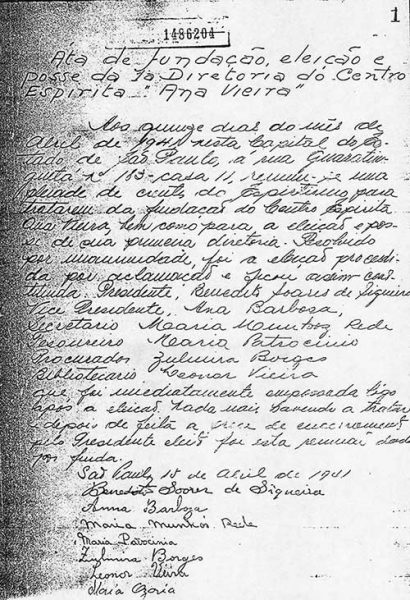 1
1486204
Ata de fundação, eleição e
posse da 1a Diretoria do Centro
Espírita "Ana Vieira"
Aos quinze dias do mês de
Abril de 1941 nesta Capital do Es-
tado de São Paulo, a rua Guaratin-
guetá nº 153 - casa 11, reuniu-se uma
de do Espiritismo para
tratarem da fundação do Centro Espírita
Ana Vieira, bem como para a eleição e pos-
se de sua primeira diretoria. Resolvido
por unanimidade, foi a eleição procedi-
da por aclamação e ficou assim cons-
tituida: Presidente, Benedito Soares de Siqueira
Vice Presidente, Ana Barbosa,
Secretario Maria Munhoz Rede
Tesoureiro Maria Patrocinio
Procurador Zulmira Borges
Bibliotecario Leonor Vieira
que foi imediatamente empossada logo
após a eleição. Nada mais havendo a tratar
e depois de feita a prece de encerramento
pelo Presidente eleito foi esta reunião dada
por finda.
São Paulo, 15 de Abril de 1941
Benedito Soares de Siqueira
Anna Barboza
Maria Munhós Rede
Maria Patrocinia
Zulmira Borges
Leonor Vieira
Maria